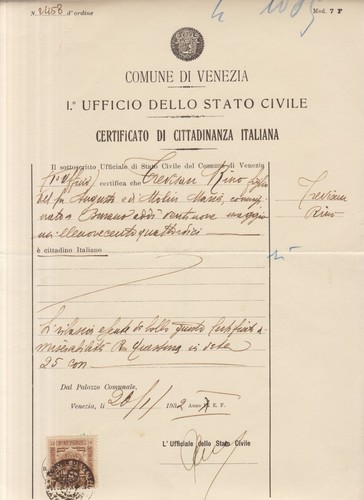 N. 2458 d'ordine
Mod. 7 F
COMUNE DI VENEZIA
I.° UFFICIO DELLO STATO CIVILE
CERTIFICATO DI CITTADINANZA ITALIANA
Il sottoscritto Ufficiale di Stato Civile del Comune di Venezia
certifica che Trevisan Rino figlio
Trevisan
Rino
del fu Augusto e di Molin Maria
nato a Burano addì ventinove maggio
millenovecentoquattordici
è cittadino Italiano
Si rilascia esente da bollo questo Certificato
miserabilità Questura in data
25 corr.
Dal Palazzo Comunale,
Venezia, li 26/1/ 1932 Anno X E. F.
L'Ufficiale dello Stato Civile